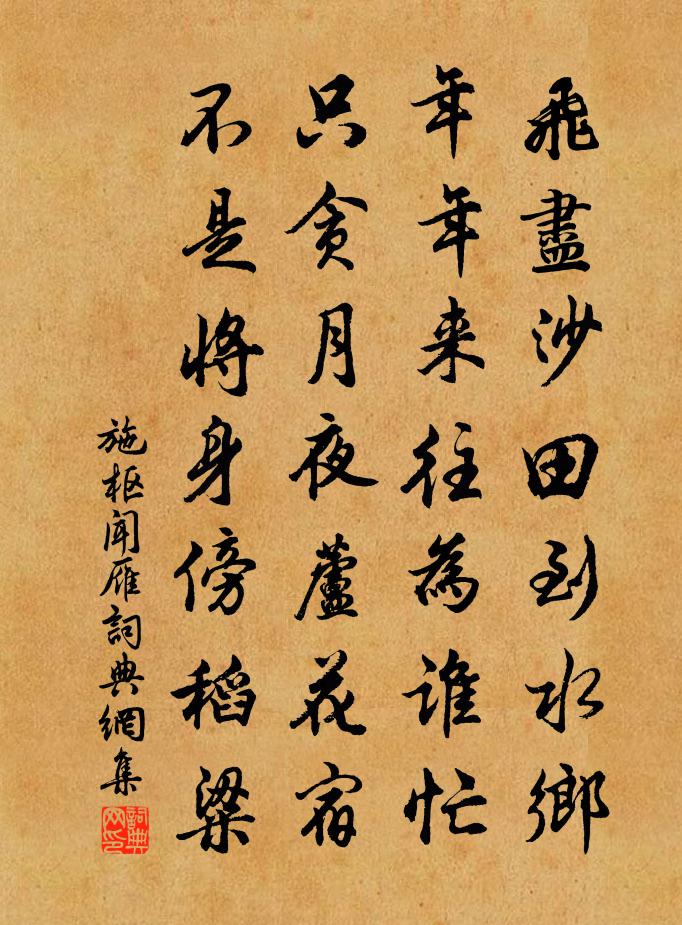 飛盡沙田到水鄉
年年来往為誰忙
只貪月夜蘆花宿
不是将身傍稻粱
施枢闻雁詞典網集
詞典网印